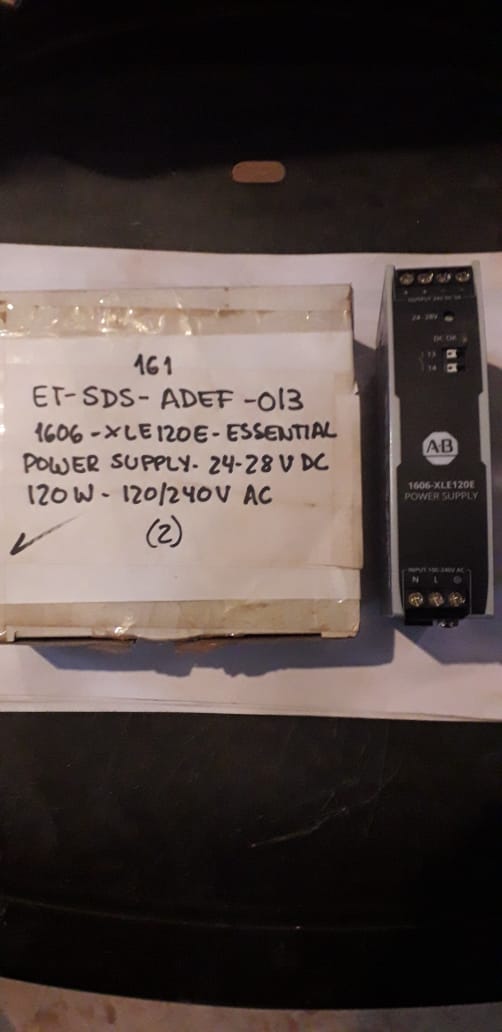 161
ET-SDS-ADEF-013
1606-XLE120E-ESSENTIAL
POWER SUPPLY- 24-28 V DC
120W - 120/240V AC
(2)
+ + - -
OUTPUT 24V DC 5A
24-28V
DC OK
13
14
A-B
1606-XLE120E
POWER SUPPLY
INPUT 100-240V AC
N L